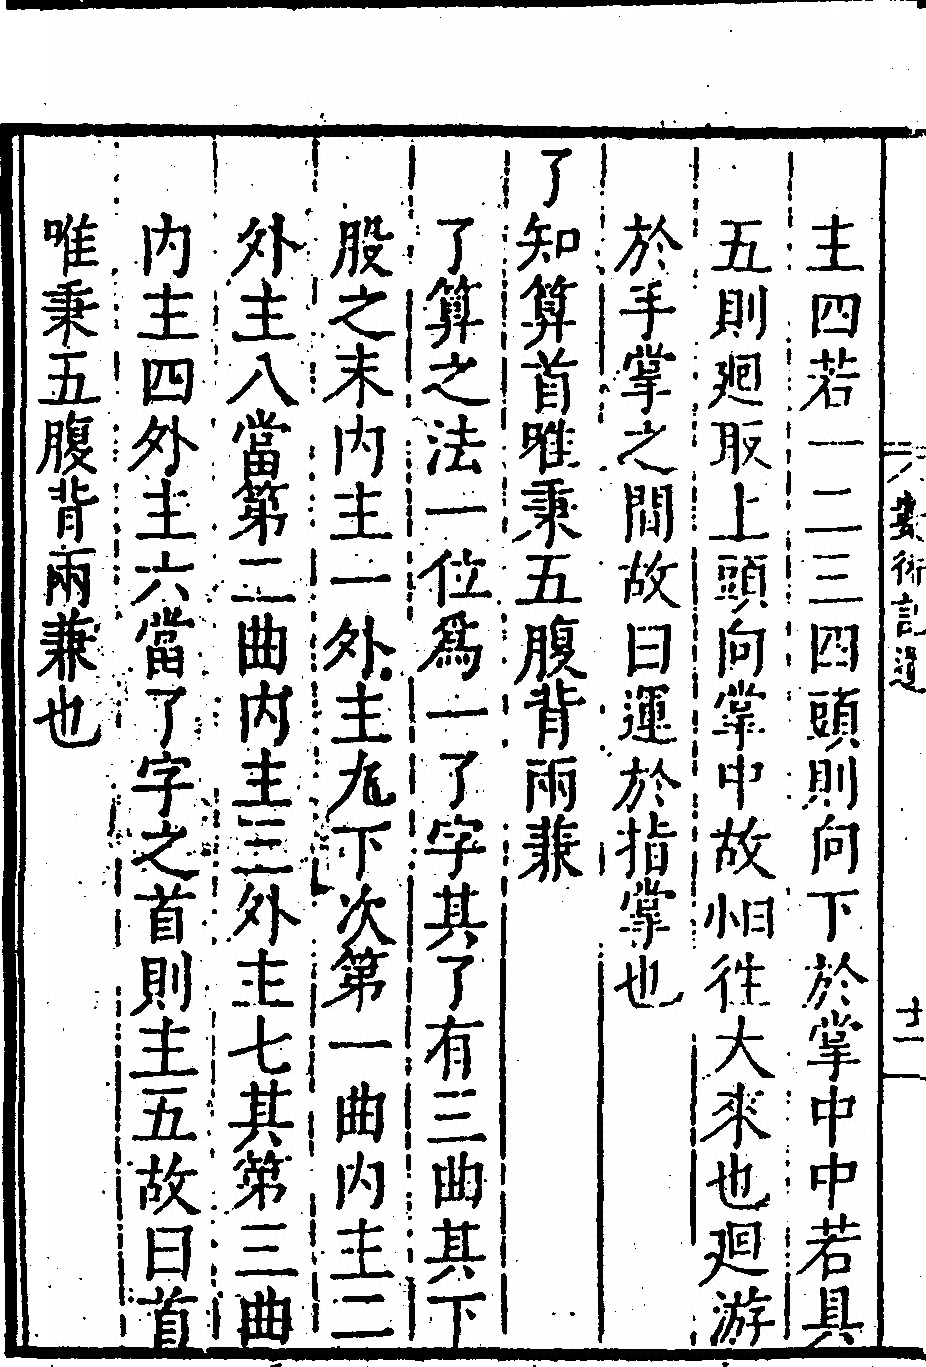 主四若一二三四頭則向下於掌中中若具
五則廻取上頭向掌中故怕徃大來也廻游
於手掌之間故曰運於指掌也
了知算首唯秉五腹背兩兼
了算之法一位爲一了字其了有三曲其下
股之末内主一外主九下次第一曲内主二
外主八當第二曲内主三外主七其第三曲
内主四外主六當了字之首則主五故曰首
唯秉五腹背兩兼也
數術記遺
十一